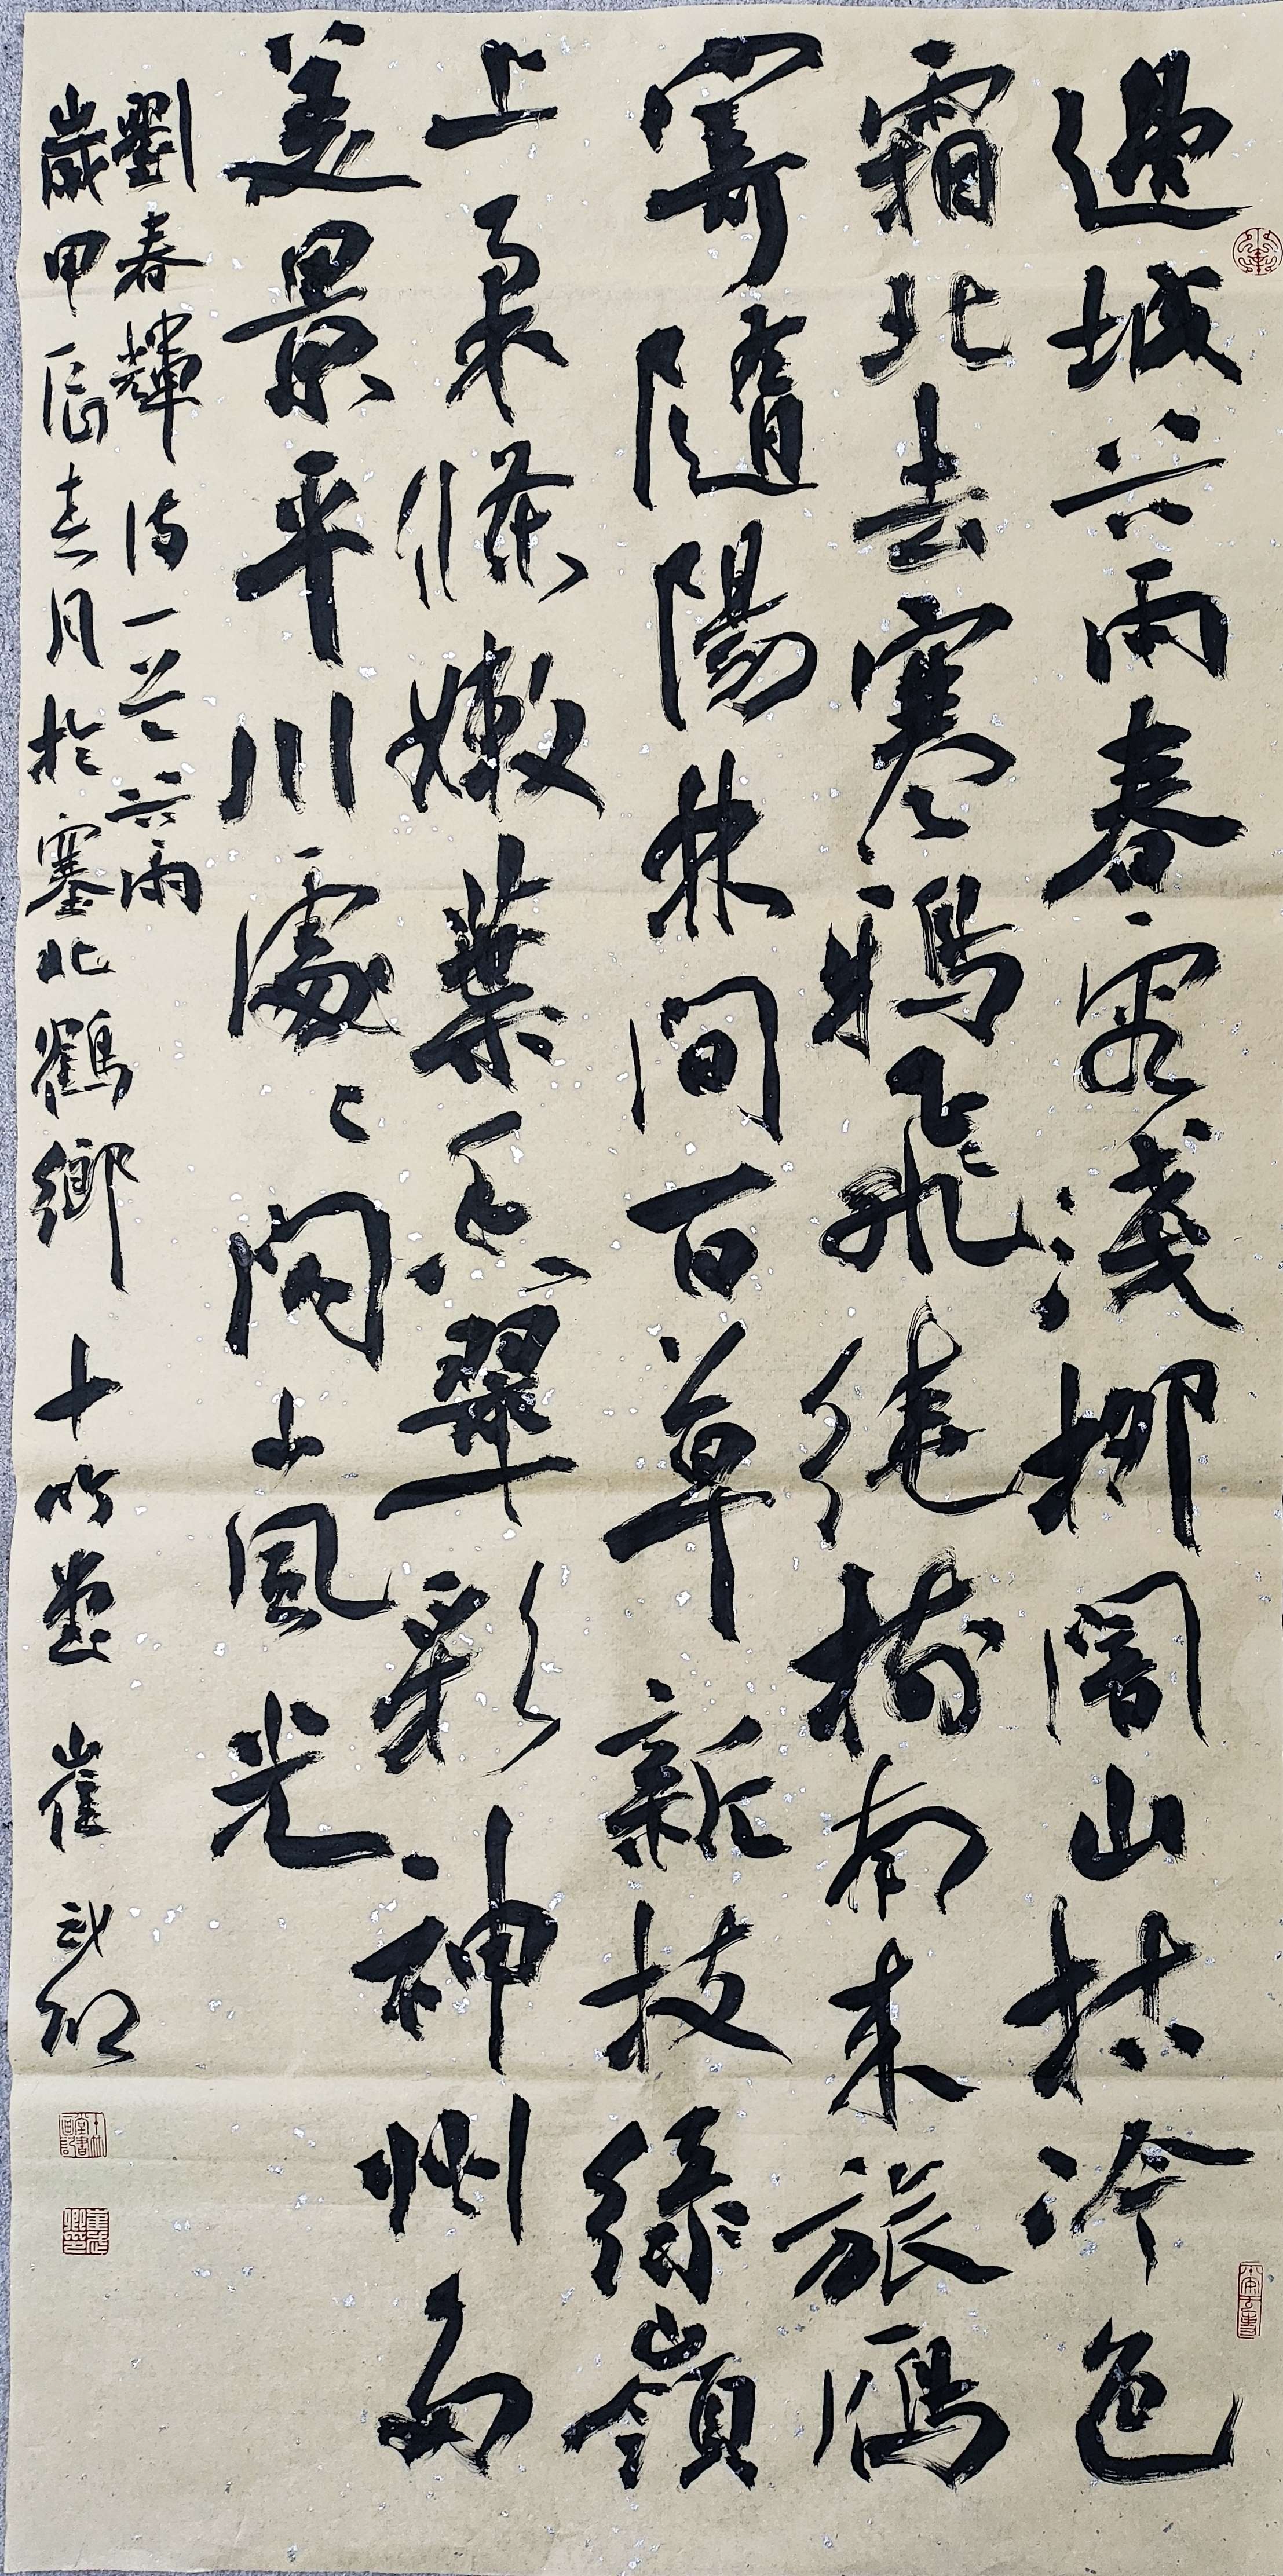 邊城谷雨春容淺柳闇山冷色
霜北去寒鴉飛繞樹南來旅鴈
寄隨陽林間百草新枝綠嶺
上柔條嫩葉翠彩神州多
美景平川處〻閙風光
劉春輝詩一首谷雨
歲甲辰春月於塞北鶴鄉 十竹堂 崔武卿